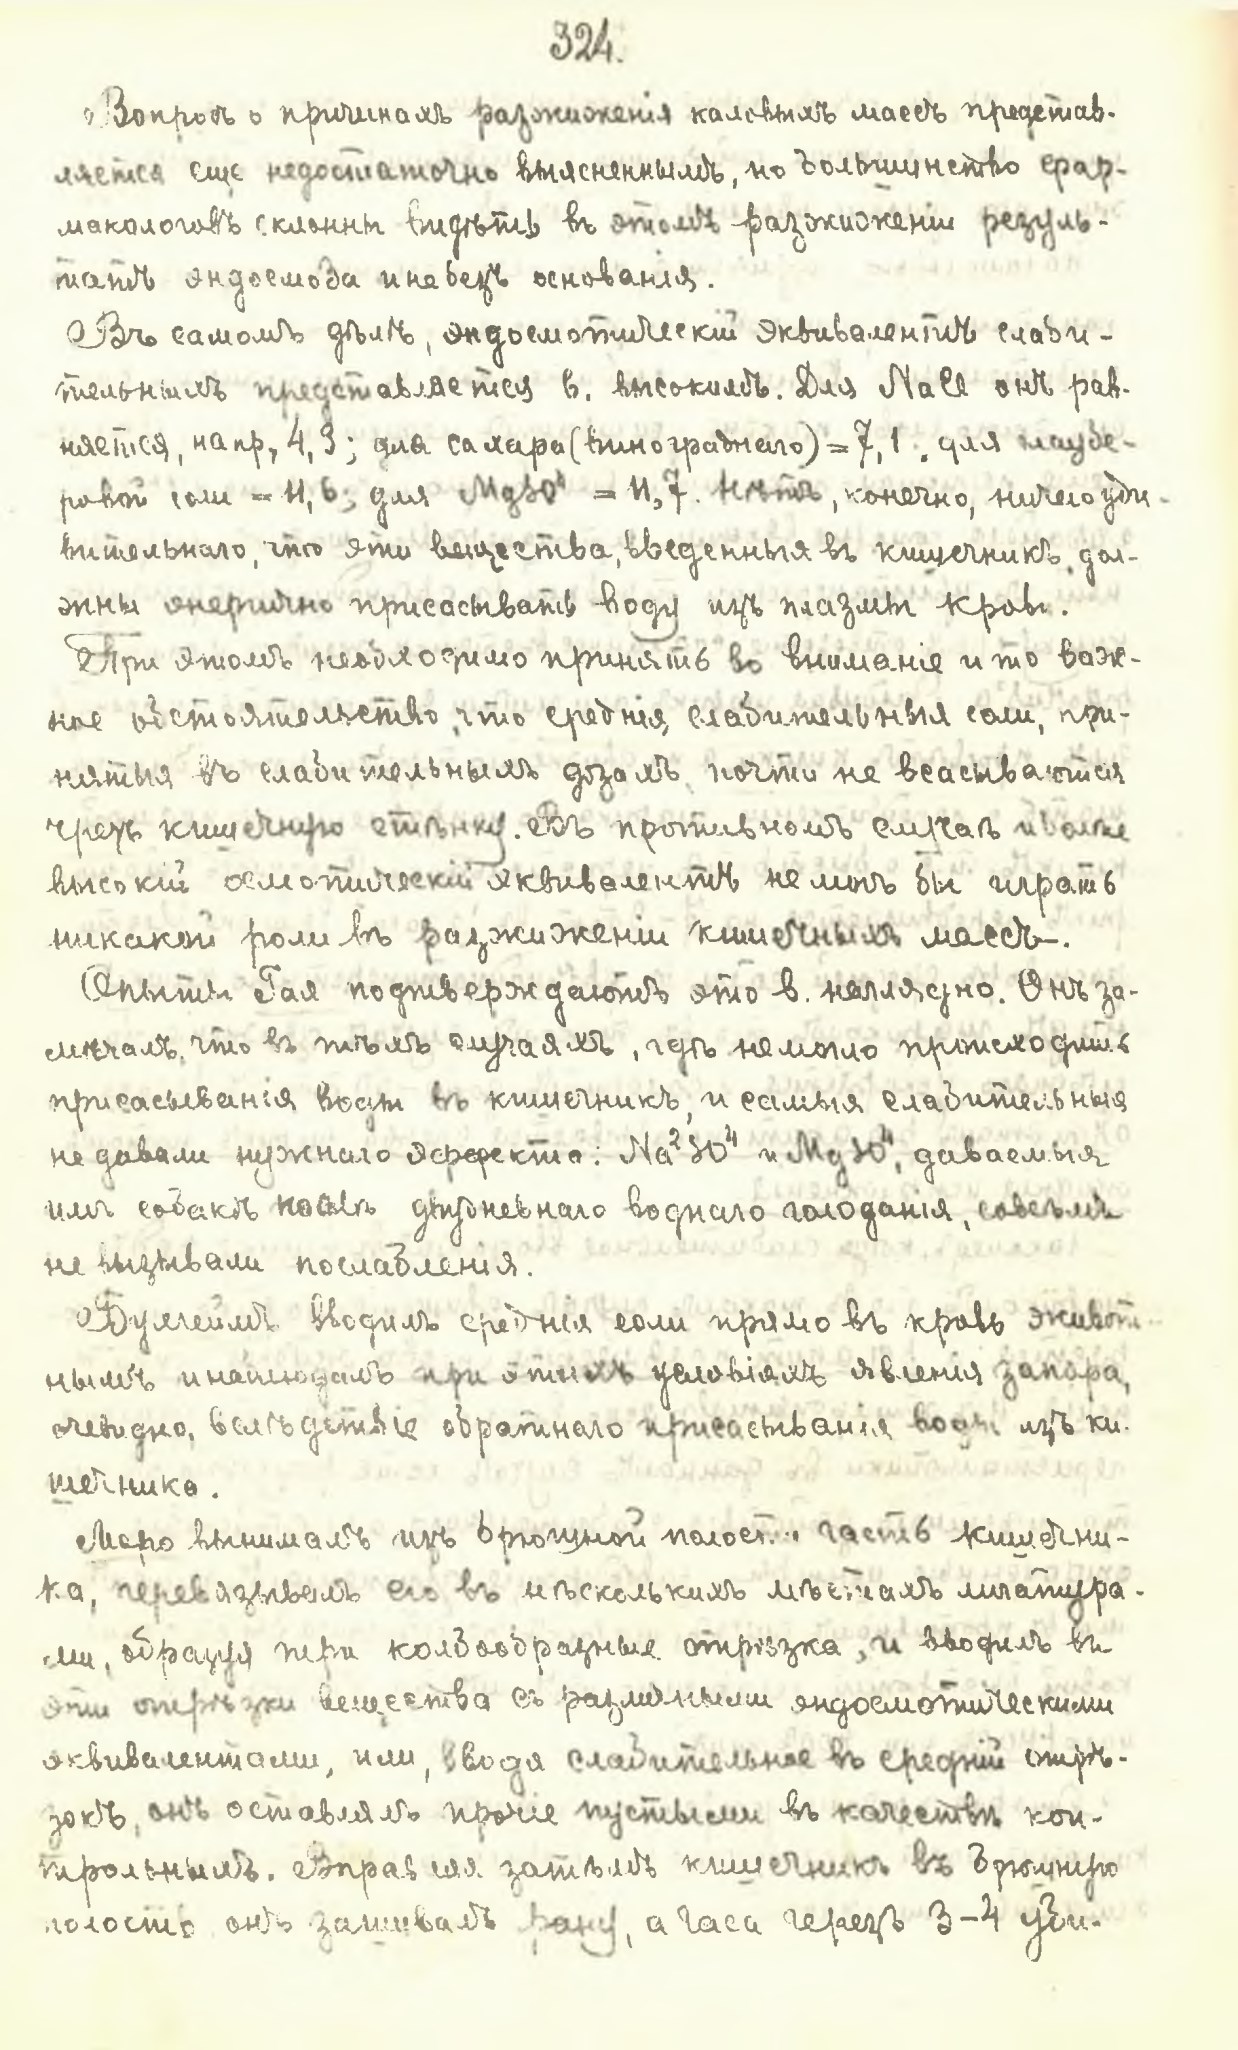 324.
Вопросъ о причинахъ разжиженія каловыхъ массъ представ-
ляется еще недостаточно выясненнымъ, но большинство фар-
макологовъ склонны видѣть въ этомъ разжиженіи резуль-
татъ эндосмоза и не безъ основанія.
Въ самомъ дѣлѣ, эндосмотическій эквивалентъ слаби-
тельныхъ представляется в. высокимъ. Для NaCl онъ рав-
няется, напр, 4,3; для сахара (винограднаго) = 7,1. для глаубе-
ровой соли = 11,6; для MgSO⁴ = 11,7. Нѣтъ, конечно, ничего уди-
вительнаго, что эти вещества, введенныя въ кишечникъ, дол-
жны энергично присасывать воду изъ плазмы крови.
При этомъ необходимо принять во вниманіе и то важ-
ное обстоятельство, что среднія слабительныя соли, при-
нятыя въ слабительныхъ дозахъ, почти не всасываются
чрезъ кишечную стѣнку. Въ противномъ случаѣ и болѣе
высокій осмотическій эквивалентъ не могъ бы играть
никакой роли въ разжиженіи кишечныхъ массъ.
Опыты Гая подтверждаютъ это в. наглядно. Онъ за-
мѣчалъ, что въ тѣхъ случаяхъ, гдѣ не могло происходить
присасыванія воды въ кишечникъ, и самыя слабительныя
не давали нужнаго эффекта: Na²SO⁴ и MgSO⁴, даваемыя
имъ собакѣ послѣ двухдневнаго воднаго голоданія, совсѣмъ
не вызывали послабленія.
Бухгеймъ вводилъ среднія соли прямо въ кровь живот-
нымъ и наблюдалъ при этихъ условіяхъ явленія запора,
очевидно, вслѣдствіе обратнаго присасыванія воды изъ ки-
шечника.
Моро вынималъ изъ брюшной полости часть кишечни-
ка, перевязывалъ его въ нѣсколькихъ мѣстахъ лигатура-
ми, образуя три колбообразные отрѣзка, и вводилъ въ
эти отрѣзки вещества съ различными эндосмотическими
эквивалентами, или, вводя слабительное въ средній отрѣ-
зокъ, онъ оставлялъ прочіе пустыми въ качествѣ кон-
трольныхъ. Вправляя затѣмъ кишечникъ въ брюшную
полость онъ зашивалъ рану, а часа черезъ 3-4 уби-